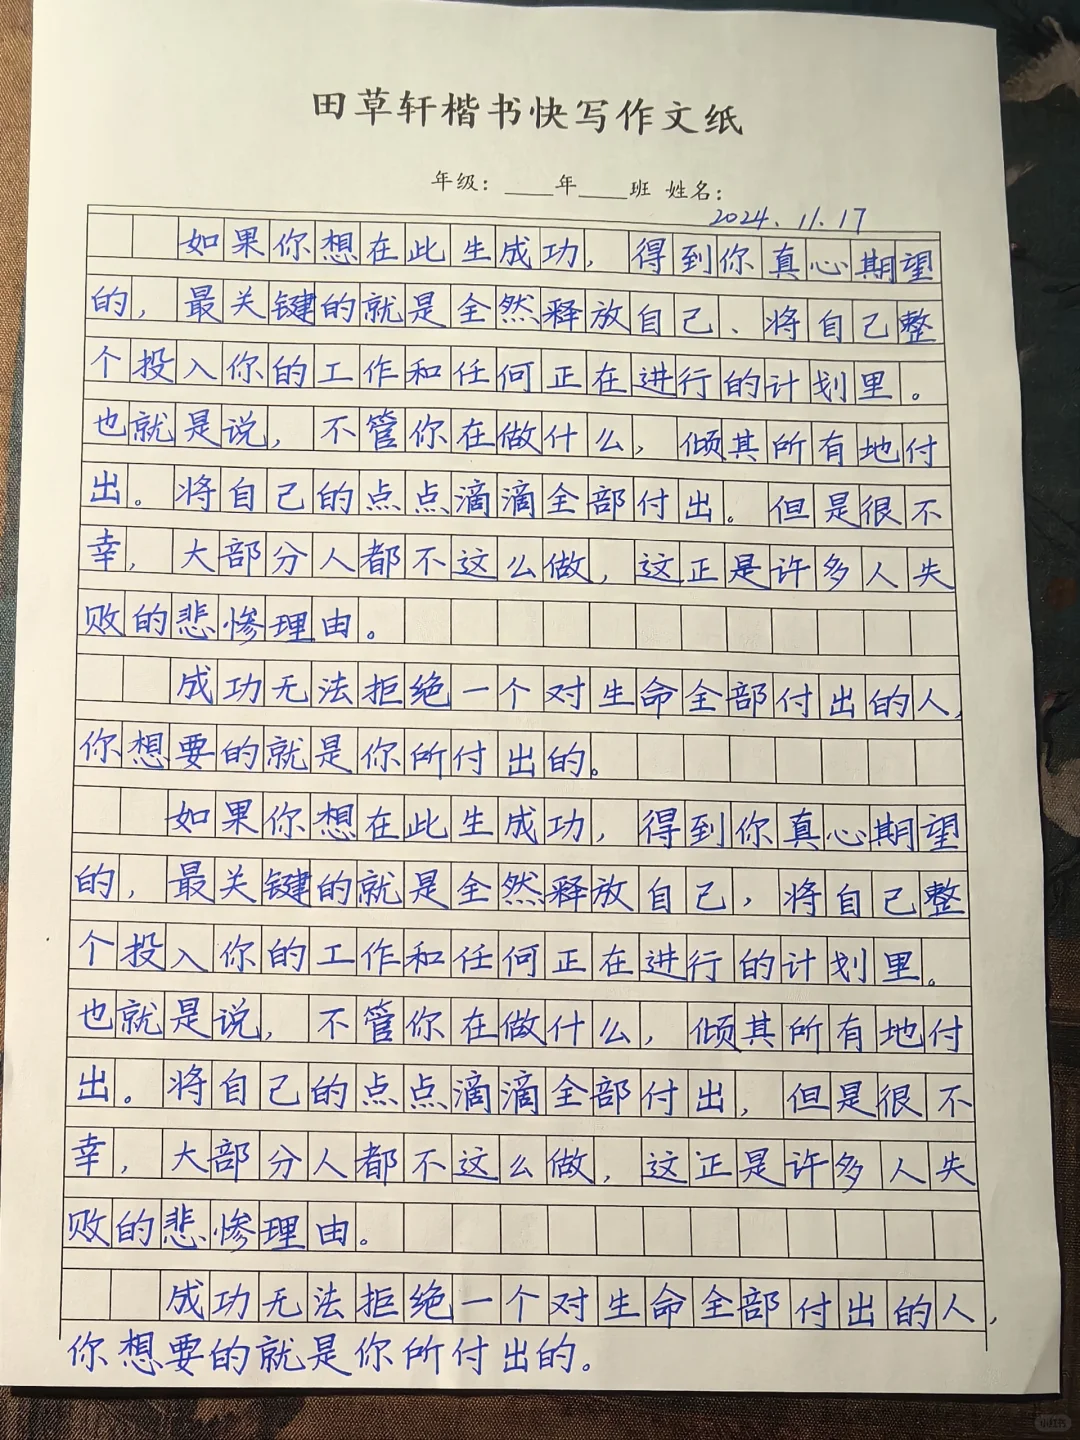 田草轩楷书快写作文纸
年级：____年____班 姓名：
2024.11.17
如果你想在此生成功，得到你真心期望
的，最关键的就是全然释放自己、将自己整
个投入你的工作和任何正在进行的计划里。
也就是说，不管你在做什么，倾其所有地付
出。将自己的点点滴滴全部付出。但是很不
幸，大部分人都不这么做，这正是许多人失
败的悲惨理由。
成功无法拒绝一个对生命全部付出的人，
你想要的就是你所付出的。
如果你想在此生成功，得到你真心期望
的，最关键的就是全然释放自己，将自己整
个投入你的工作和任何正在进行的计划里。
也就是说，不管你在做什么，倾其所有地付
出。将自己的点点滴滴全部付出，但是很不
幸，大部分人都不这么做，这正是许多人失
败的悲惨理由。
成功无法拒绝一个对生命全部付出的人，
你想要的就是你所付出的。